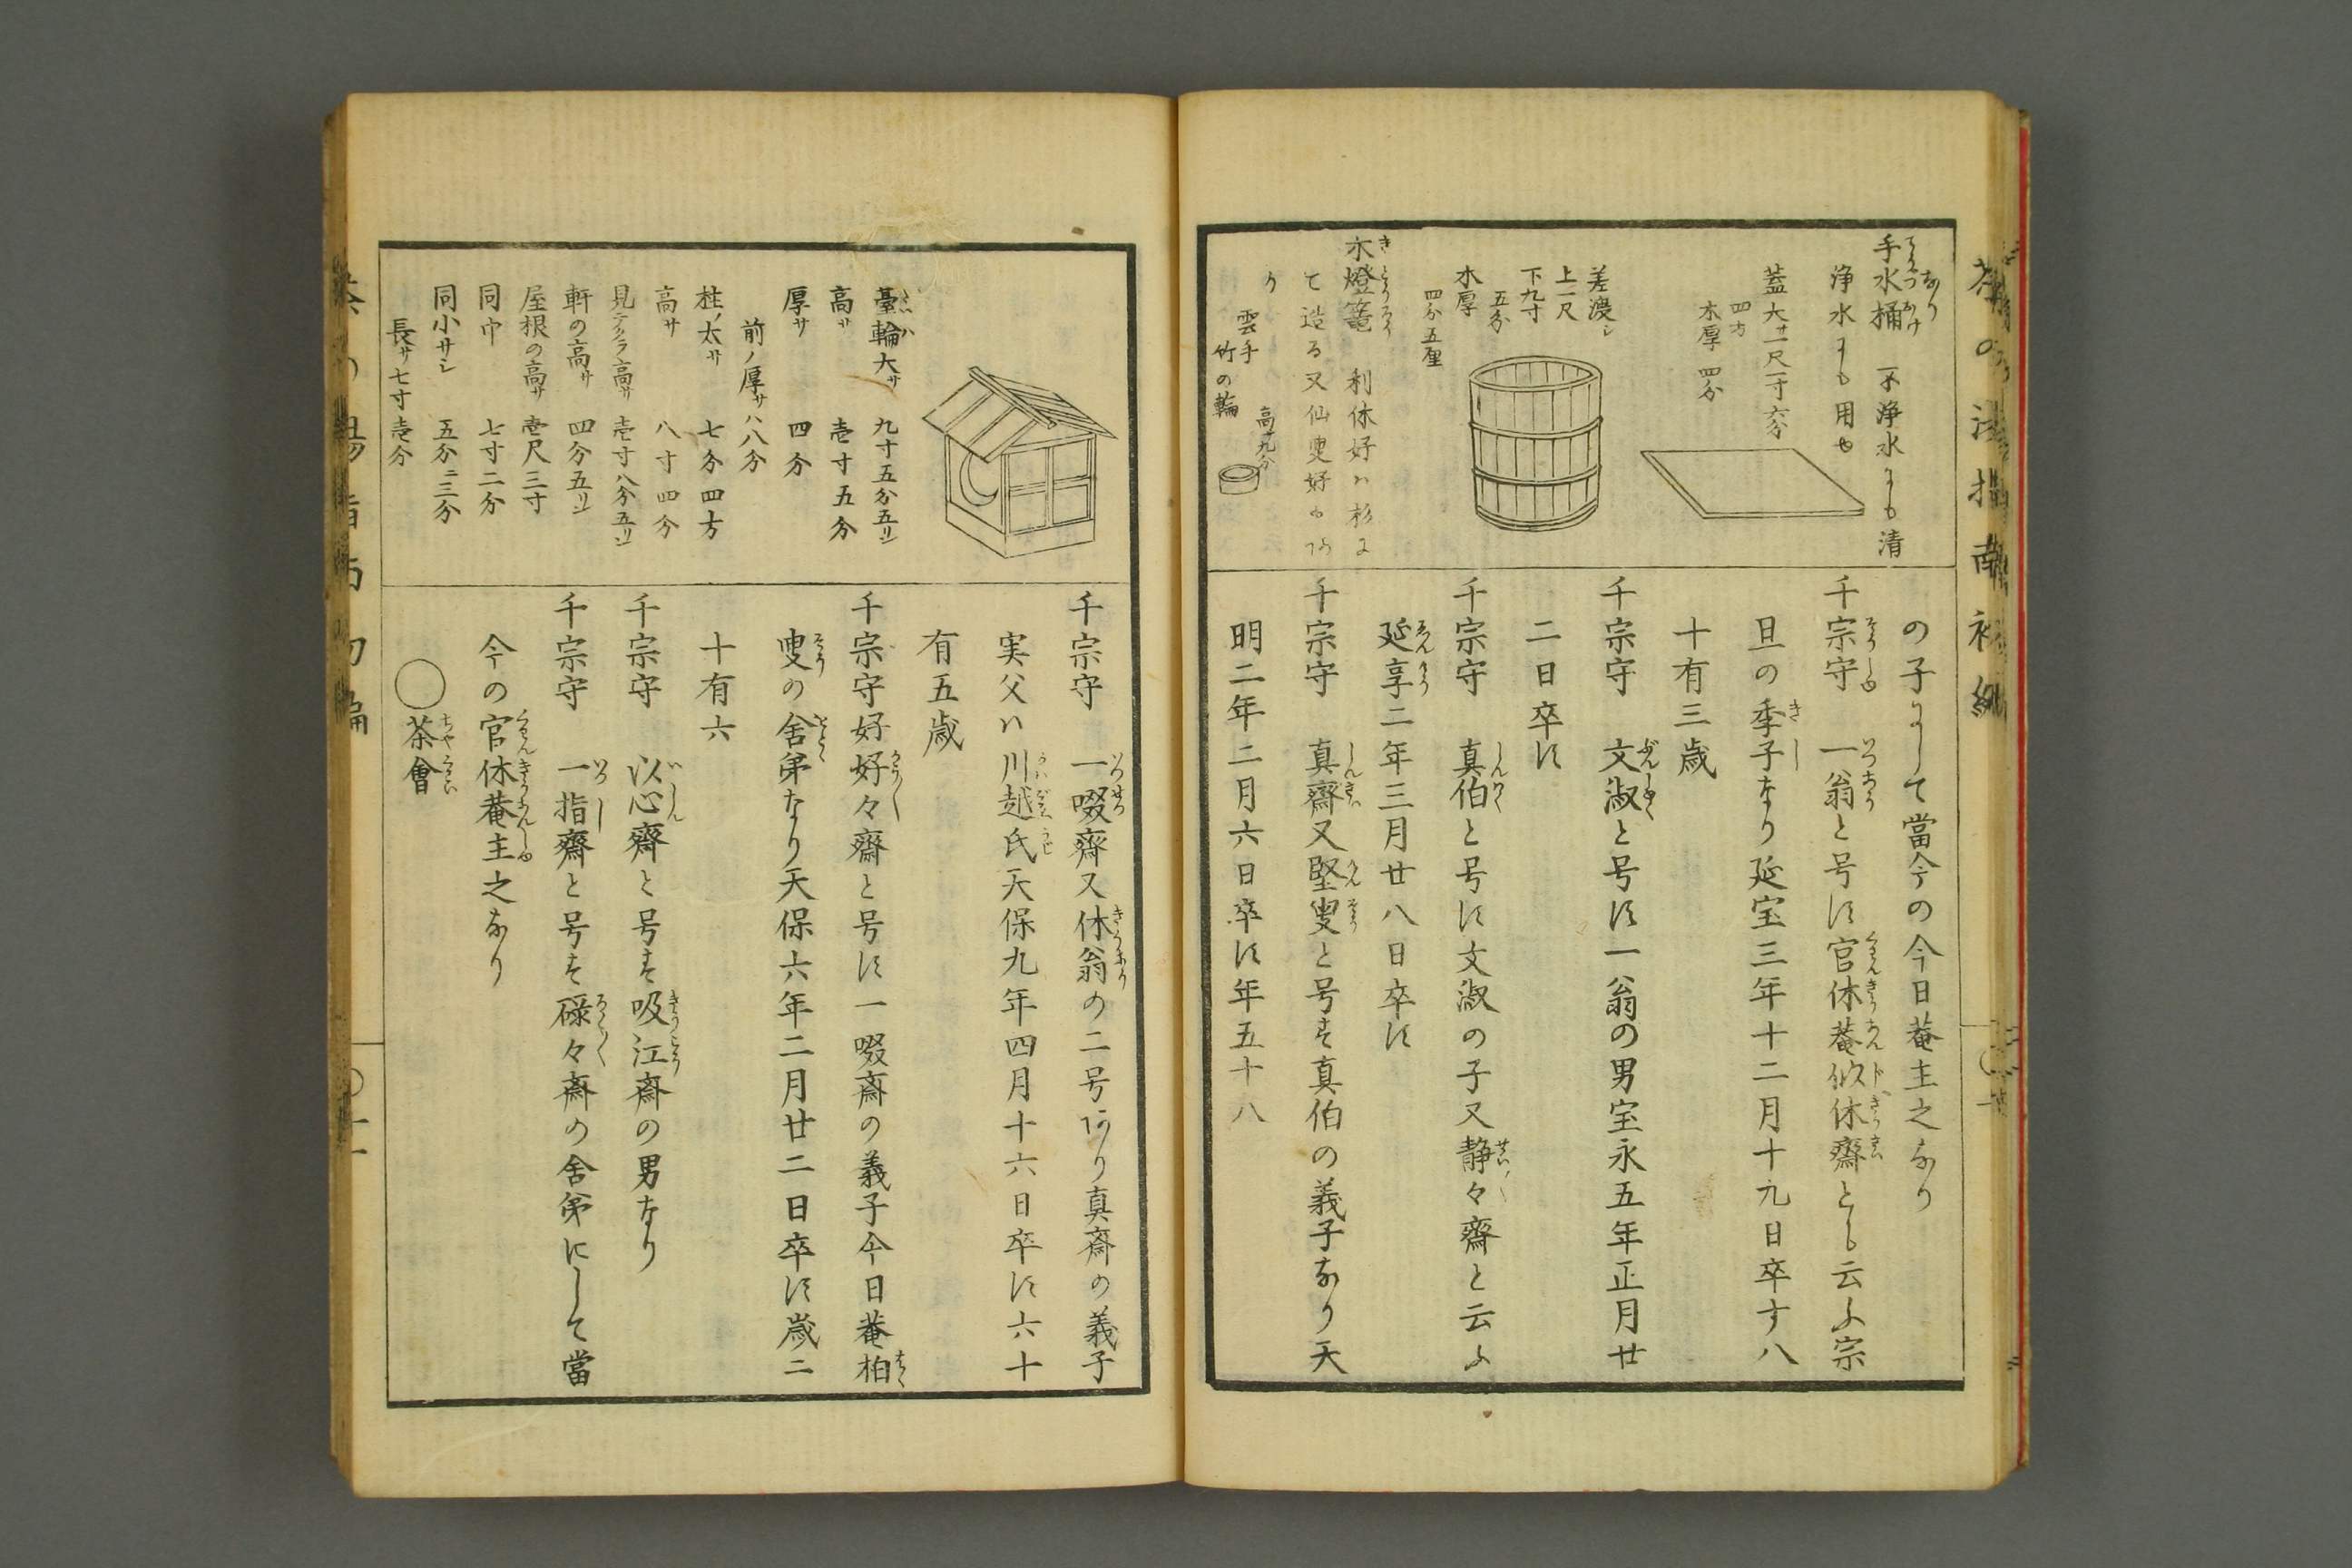 手水桶　不浄水にも清
浄水にも用也
蓋大サ一尺一寸六分
四方
木厚四分
差渡シ
上一尺
下九寸
五分
木厚
四分五厘
木燈篭　利休好ハ杉に
て造る又仙叟好もあ
り
雲手
竹の輪
高一寸九分
の子にして當今の今日菴主之なり
千宗守　一翁と号す官休菴似休齋とも云ふ宗
旦の季子なり延宝三年十二月十九日卒す八
十有三歳
千宗守　文淑と号す一翁の男宝永五年正月廿
二日卒す
千宗守　真伯と号す文淑の子又静々齋と云ふ
延享二年三月廿八日卒す
千宗守　真齋又堅叟と号す真伯の義子なり天
明二年二月六日卒す年五十八
臺輪大サ　九寸五分五リン
高サ　壱寸五分
厚サ　四分
前ノ厚サハ八分
柱ノ太サ　七分四方
高サ　八寸四分
見テクラ高サ　壱寸八分五リン
軒の高サ　四分五リン
屋根の高サ　壱尺三寸
同巾　七寸二分
同小サシ　五分ニ三分
長サ七寸壱分
千宗守　一啜齊又休翁の二号あり真斎の義子
実父ハ川越氏天保九年四月十六日卒す六十
有五歳
千宗守好好々齋と号す一啜斎の義子今日菴柏
叟の舎弟なり天保六年二月廿二日卒す歳二
十有六
千宗守　以心齋と号す吸江斎の男なり
千宗守　一指齋と号す碌々斎の舍弟にして當
今の官休菴主之なり
○茶會